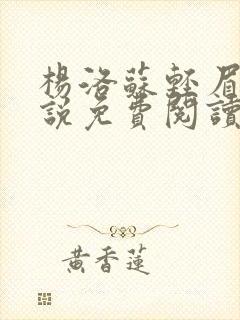 楊洛蘇輕眉
說免費閱讀
黃香蓮